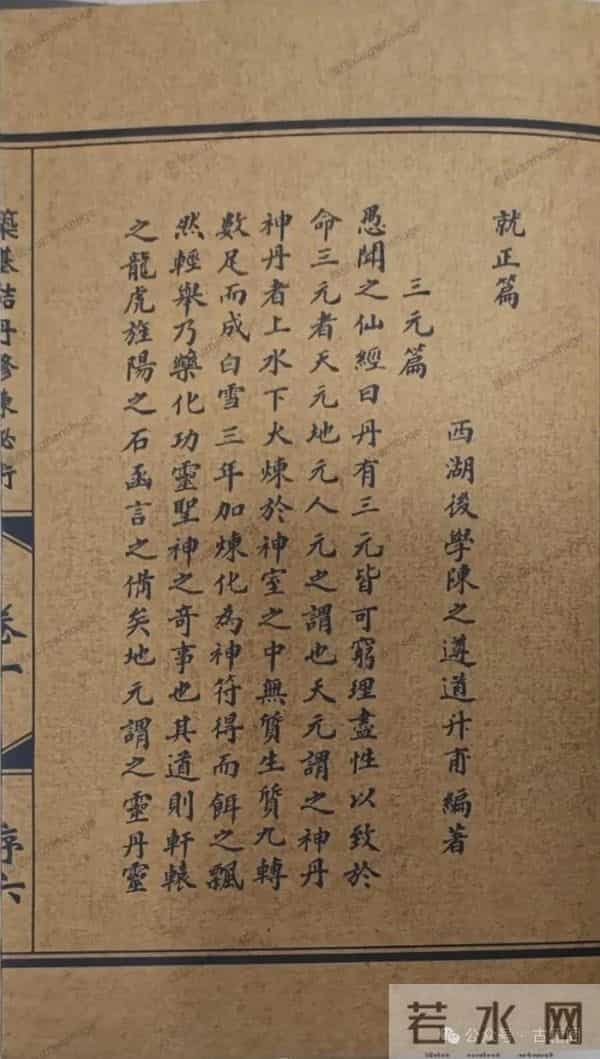 就正篇
西湖後學陳之遴道升甫編著
三元篇
愚聞之仙經曰丹有三元皆可窮理盡性以致於
命三元者天元地元人元之謂也天元謂之神丹
神丹者上水下火煉於神室之中無質生質九轉
數足而成白雪三年加煉化為神符得而餌之飄
然輕舉乃藥化功靈聖神之奇事也其道則軒轅
之龍虎旌陽之石函言之備矣地元謂之靈丹靈
築基結丹修煉秘術
卷一
序六
若水网
公众号·古